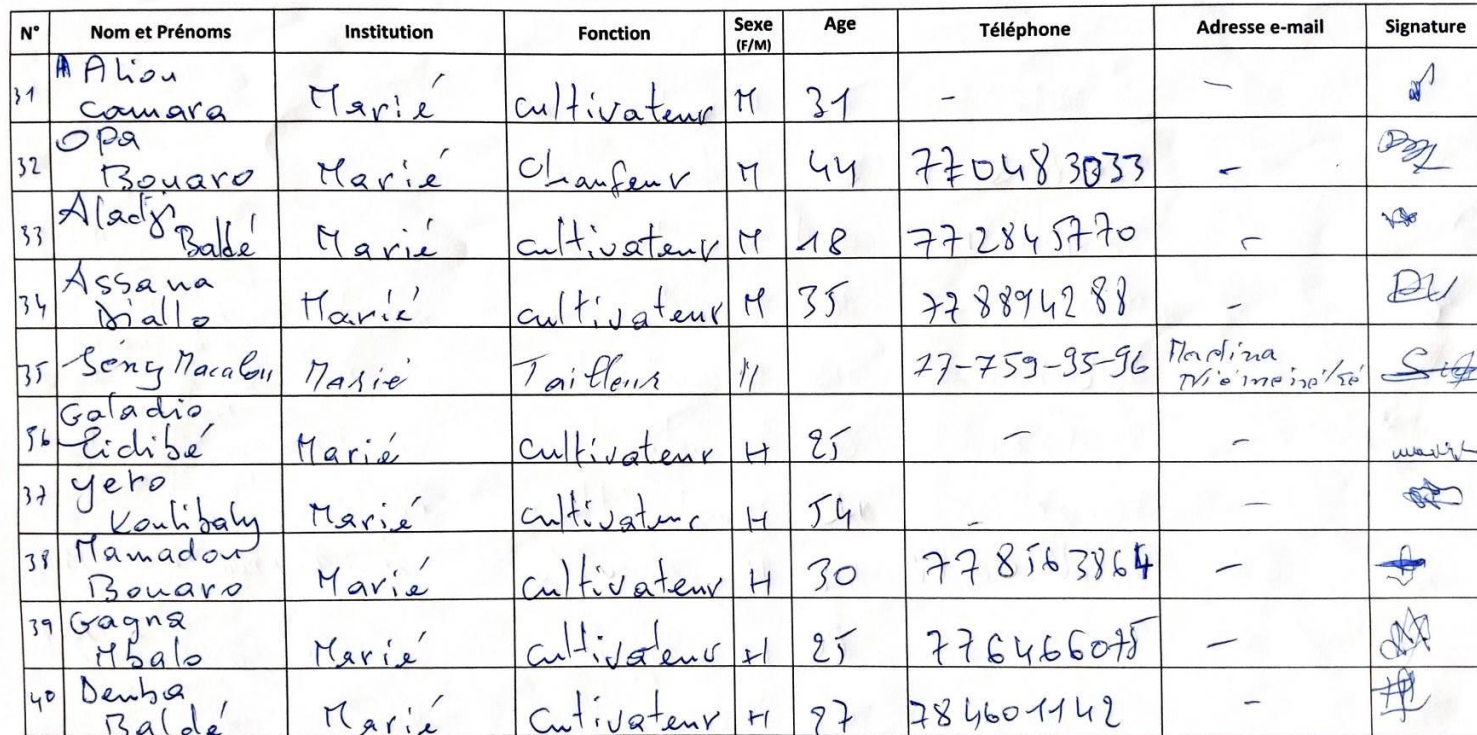 N° Nom et Prénoms Institution Fonction Sexe (F/M) Age Téléphone Adresse e-mail Signature
31 Aliou Camara Marié Cultivateur M 31 - -
32 Opa Bouaro Marié Chaufeur M 44 770483033 -
33 Aladji Baldé Marié Cultivateur M 18 772845770 -
34 Assana Diallo Marié Cultivateur M 35 778894288 -
35 Seny Macalou Marié Tailleur M 77-759-95-96 Madina
36 Galadio Sidibé Marié Cultivateur H 25 - -
37 Yero Koulibaly Marié Cultivateur H 54 - -
38 Mamadou Bouaro Marié Cultivateur H 30 778563864 -
39 Gagna Mbalo Marié Cultivateur H 25 776466075 -
40 Demba Baldé Marié Cutivateur H 27 784601142 -